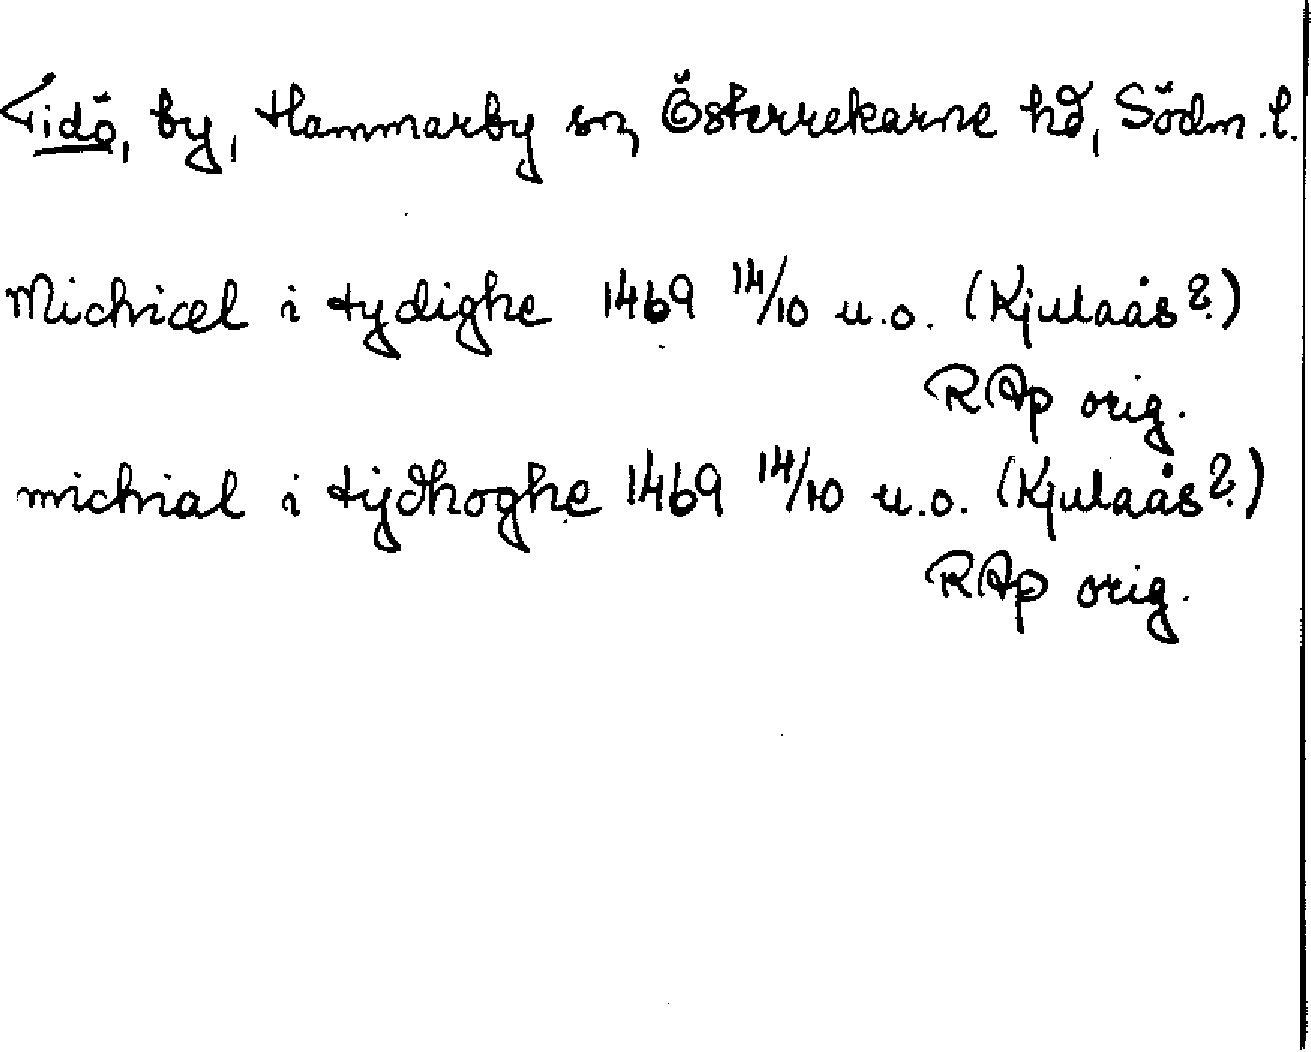 Tidö, by, Hammarby sn, Österrekarne hd, Södm. l.
Michiæl i tydighe 1469 14/10 u.o. (Kjulaås?)
RAp orig.
michial i tijdhoghe 1469 14/10 u.o. (Kjulaås?)
RAp orig.